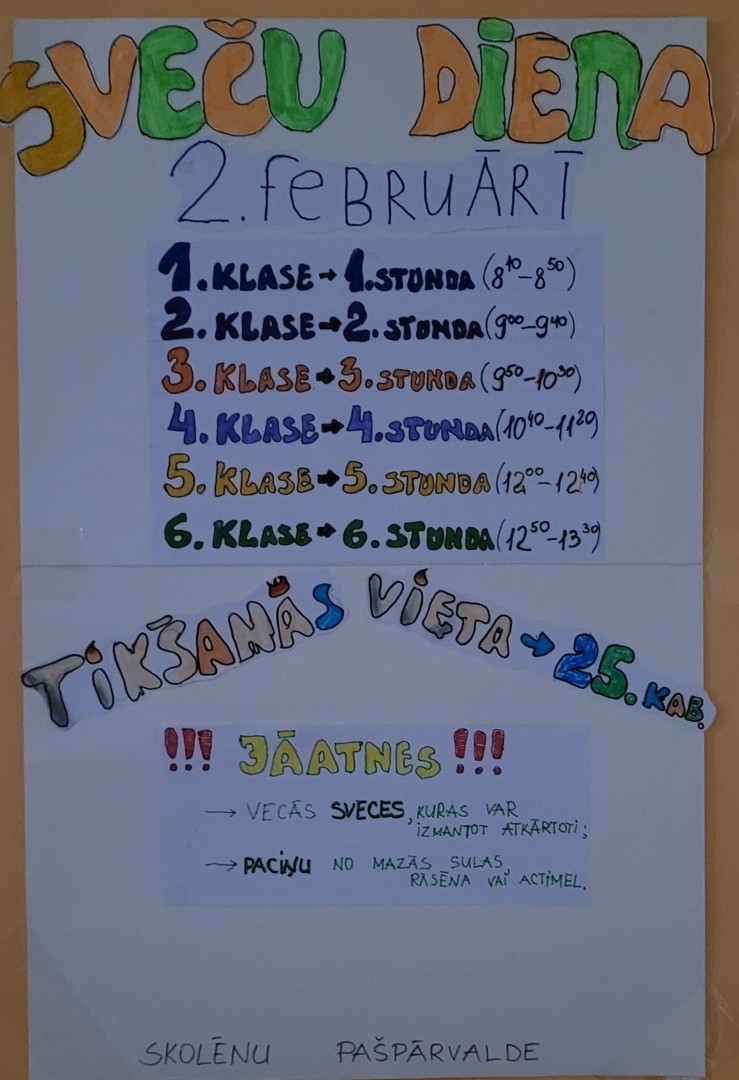 SVEČU DIENA
2. FEBRUĀRĪ
1. KLASE → 1. STUNDA (8¹⁰-8⁵⁰)
2. KLASE → 2. STUNDA (9⁰⁰-9⁴⁰)
3. KLASE → 3. STUNDA (9⁵⁰-10³⁰)
4. KLASE → 4. STUNDA (10⁴⁰-11²⁰)
5. KLASE → 5. STUNDA (12⁰⁰-12⁴⁰)
6. KLASE → 6. STUNDA (12⁵⁰-13³⁰)
TIKŠANĀS VIETA → 25. KAB.
!!! JĀATNES !!!
→ VECĀS SVECES, KURAS VAR
IZMANTOT ATKĀRTOTI;
→ PACIŅU NO MAZĀS SULAS,
RĀSĒNA VAI ACTIMEL.
SKOLĒNU PAŠPĀRVALDE